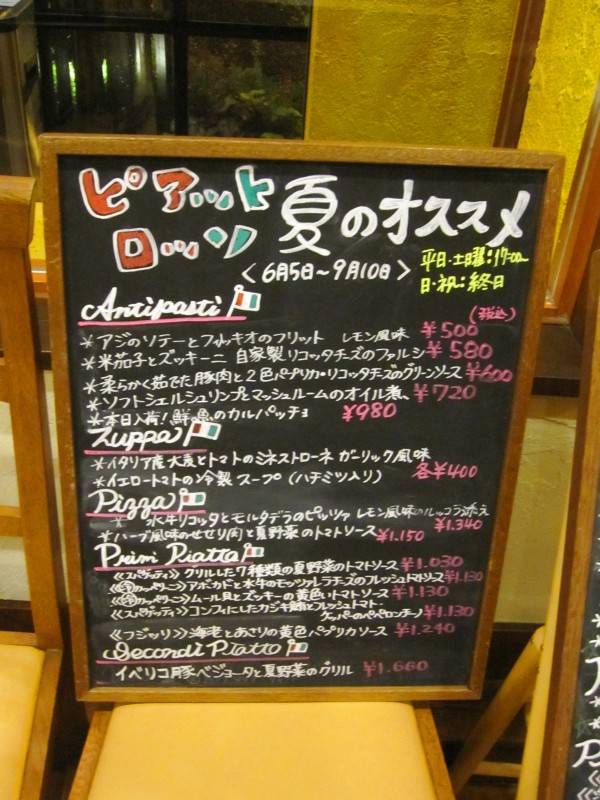 ピアット 夏のオススメ
ロッソ
〈6月5日～9月10日〉
平日・土曜:17:00~
日・祝:終日
Antipasti
(税込)
*アジのソテーとフィノッキオのフリット レモン風味 ¥500
*米茄子とズッキーニ 自家製リコッタチーズのファルシ ¥580
*柔らかく茹でた豚肉と2色パプリカ・リコッタチーズのグリーンソース ¥600
*ソフトシェルシュリンプとマッシュルームのオイル煮、 ¥720
*本日入荷!鮮魚のカルパッチョ ¥980
Zuppa
*イタリア産大麦とトマトのミネストローネ ガーリック風味
*イエロートマトの冷製スープ(ハチミツ入り) 各¥400
Pizza
* 水牛リコッタとモルタデラのピッツァ レモン風味のルッコラ添え ¥1.340
*ハーブ風味のせせり肉と夏野菜のトマトソース ¥1.150
Primi Piatto
《スパゲッティ》グリルした7種類の夏野菜のトマトソース ¥1.030
カッペリーニ》アボカドと水牛のモッツァレラチーズのフレッシュトマトソース ¥1.130
カッペリーニ》ムール貝とズッキーの黄色いトマトソース ¥1.130
《スパゲッティ》コンフィにしたカジキ鮪とフレッシュトマト・
ケッパーのペペロンチーノ ¥1.130
《フジッリ》海老とあさりの黄色パプリカソース ¥1.240
Secondi Piatto
イベリコ豚ベジョータと夏野菜のグリル ¥1.660